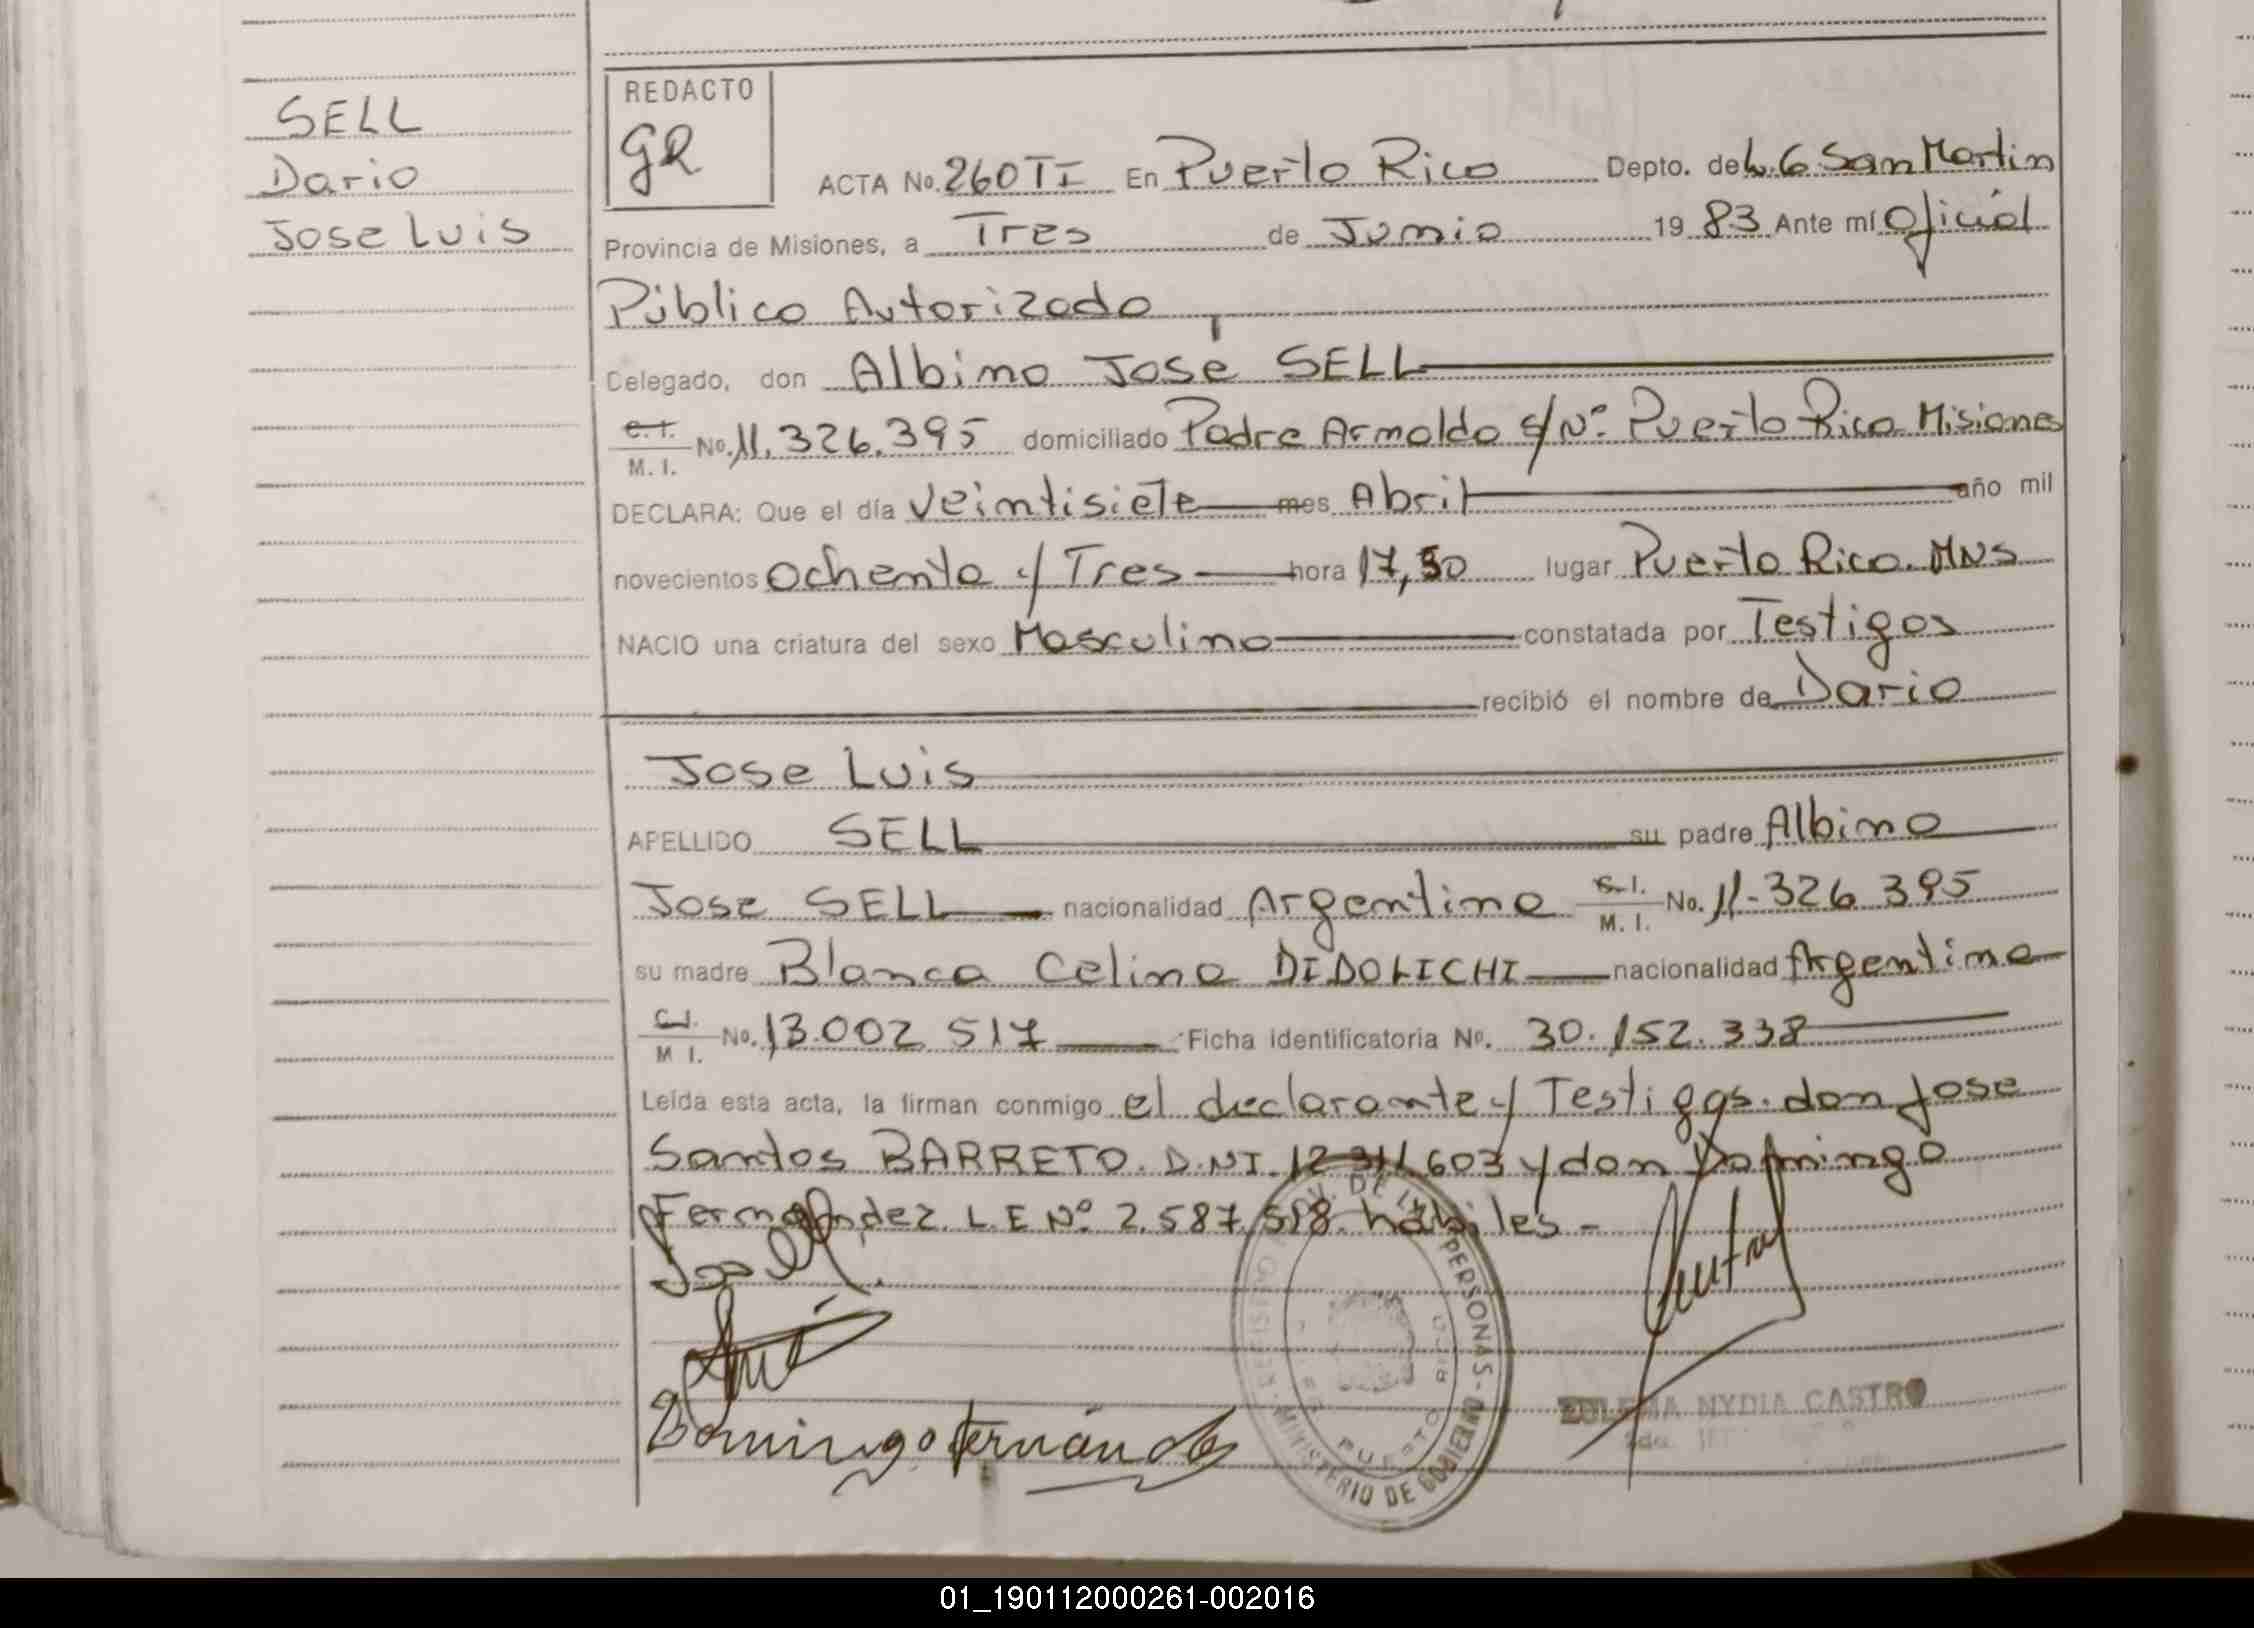 SELL
Dario
Jose Luis
REDACTO
GR
ACTA No. 260 TI En Puerto Rico Depto. de L. G San Martin
Provincia de Misiones, a Tres de Junio 19 83 Ante mí Oficial
Público Autorizado
Celegado, don Albino José SELL
C.I. M. I. No. 11.326.395 domiciliado Padre Arnoldo S/Nº Puerto Rico Misiones
DECLARA: Que el día Veintisiete mes Abril año mil
novecientos Ochenta y Tres hora 17,30 lugar Puerto Rico. MNS
NACIO una criatura del sexo Masculino constatada por Testigos
recibió el nombre de Dario
Jose Luis
APELLIDO SELL su padre Albino
Jose SELL nacionalidad Argentina C.I. M. I. No. 11.326 395
su madre Blanca Celina DIDOLICHI nacionalidad Argentina
C.I. M I. No. 13.002 517 Ficha identificatoria Nº. 30.152.338
Leída esta acta, la firman conmigo el declarante y Testigos. don Jose
Santos BARRETO. D.NI. 12 311 603 y don Domingo
Fernandez. L.E Nº 2.587.518. habiles -
Domingo Fernández
PROV. DE LAS PERSONAS - MINISTERIO DE GOBIERNO
PUERTO RICO
ZULEMA NYDIA CASTRO
01_190112000261-002016